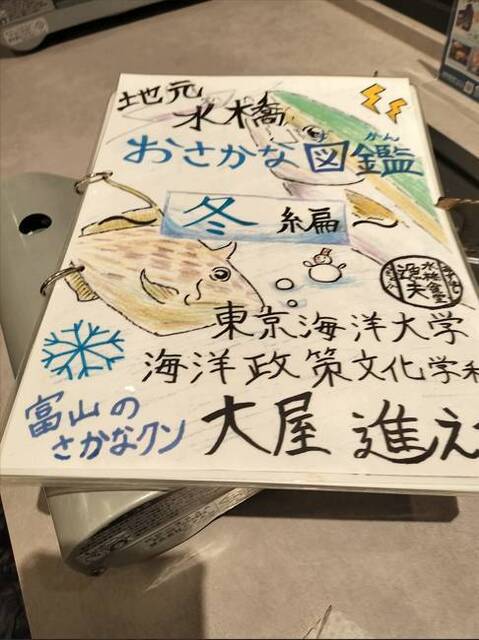 地元
水橋
おさかな図鑑
ずかん
冬編
水橋食堂
漁夫
東京海洋大学
海洋政策文化学科
富山の
さかなクン
大屋 進之